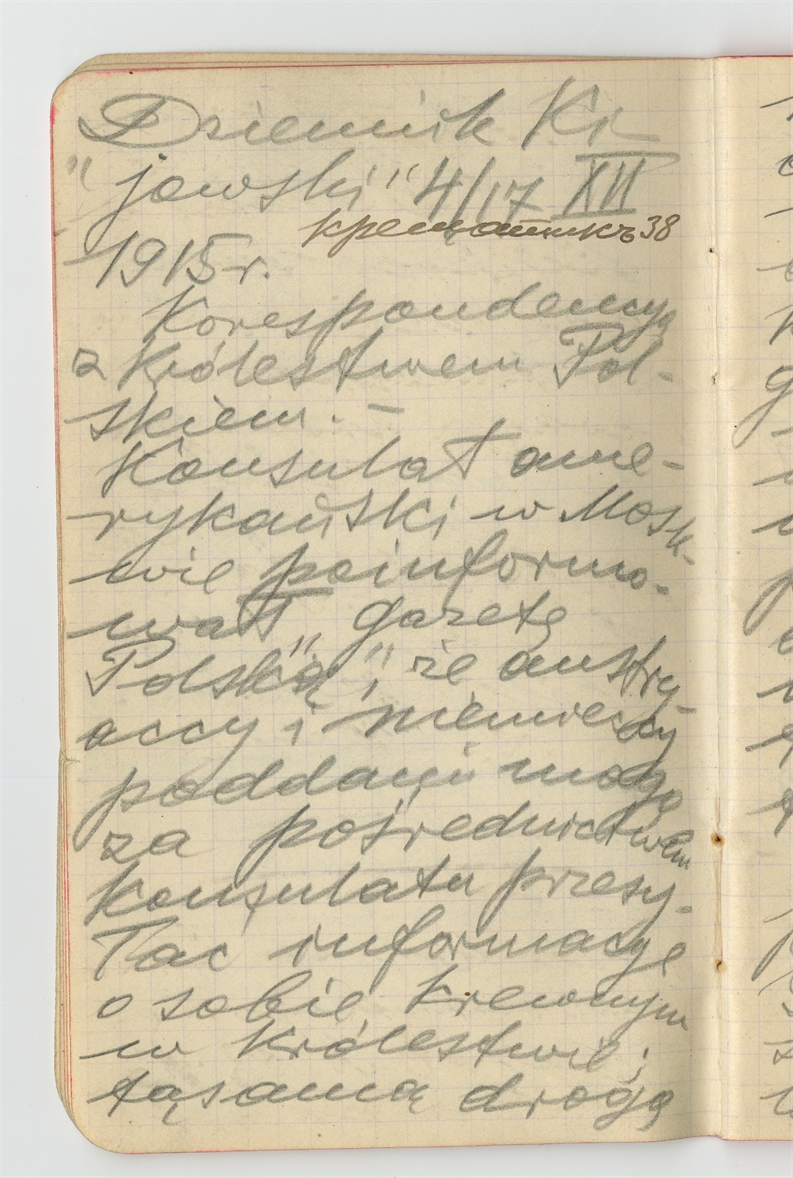 Dziennik Ki
"jowski" 4/17 XII
крещатикъ 38
1915 r.
Korespondencya
z Królestwem Pol-
skiem. –
Konsulat ame-
rykański w Mosk-
wie poinformo-
wał „Gazetę
Polską", że austry-
accy i niemieccy
poddani mogą
za pośrednictwem
konsulatu przesy-
łać informacye
o sobie krewnym
w Królestwie;
tąsamą drogą